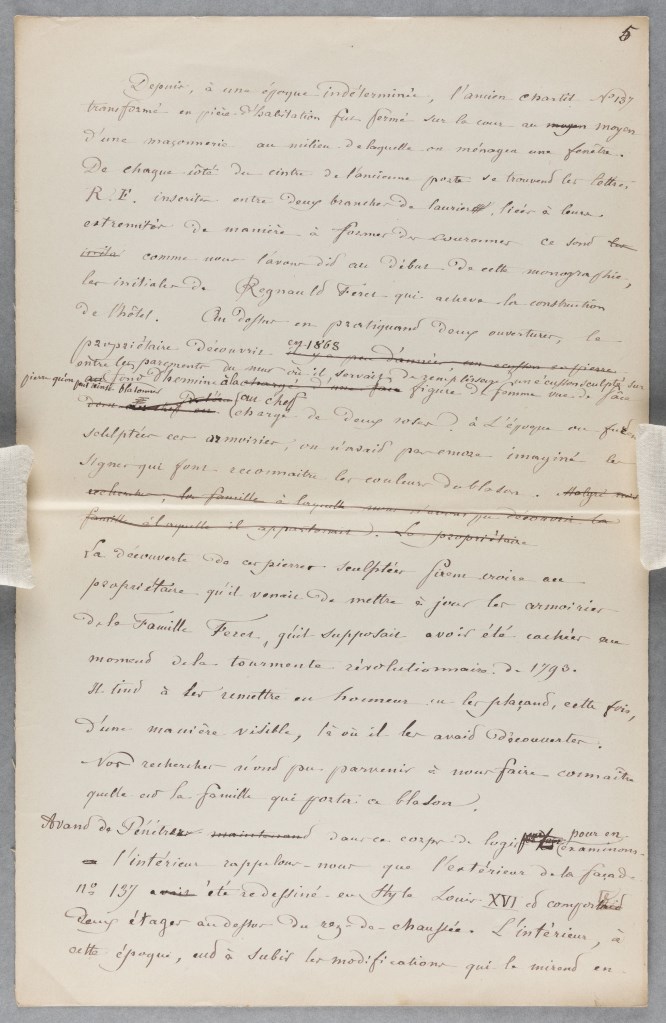 5
Depuis, à une époque indéterminée, l'ancien chartil No 137
transformé en pièce d'habitation fut fermé sur la cour au moyen moyen
d'une maçonnerie au milieu de laquelle on ménagea une fenêtre.
De chaque côté du cintre de l'ancienne porte se trouvent les lettres
R. F. inscrites entre deux branches de laurier, liées à leurs
extremités de manière à former des couronnes ce sont
comme nous l'avons dit au début de cette monographie,
les initiales de Regnauld Féret qui acheva la construction
de l'hôtel. Au dessus en pratiquant deux ouvertures, le
propriétaire découvrit en 1868 il y a peu d'années un ecusson en pierre
entre les parements du mur où il servait de remplissage, un ecusson sculpté sur
pierre qu'on peut ainsi blasonner au fond d'hermine à la chargé d'une face figure de femme vue de face
au chef chargé de deux roses. à l'époque où furent
sculptées ces armoiries, on n'avait pas encore imaginé les
signes qui font reconnaître les couleurs du blason. Malgré nos
recherches, la famille à laquelle nous n'avons pu découvrir la
famille à laquelle il appartenait. Le propriétaire
La découverte de ces pierres sculptées firent croire au
propriétaire qu'il venait de mettre à jour les armoiries
de la Famille Feret, qu'il supposait avoir été cachées au
moment de la tourmente révolutionnaire de 1793.
Il tint à les remettre en honneur en les plaçant, cette fois,
d'une manière visible, là où il les avait découvertes.
Nos recherches n'ont pu parvenir à nous faire connaître
quelle est la famille qui portai ce blason.
Avant de Pénétrer maintenant dans ce corps de logis pour en examiner
l'intérieur rappelons-nous que l'extérieur de la façade
no 137 avait été redessiné en Style Louis XVI et comportait
Deux étages au dessus du rez-de-chaussée. L'intérieur, à
cette époque, eut à subir les modifications qui le mirent en